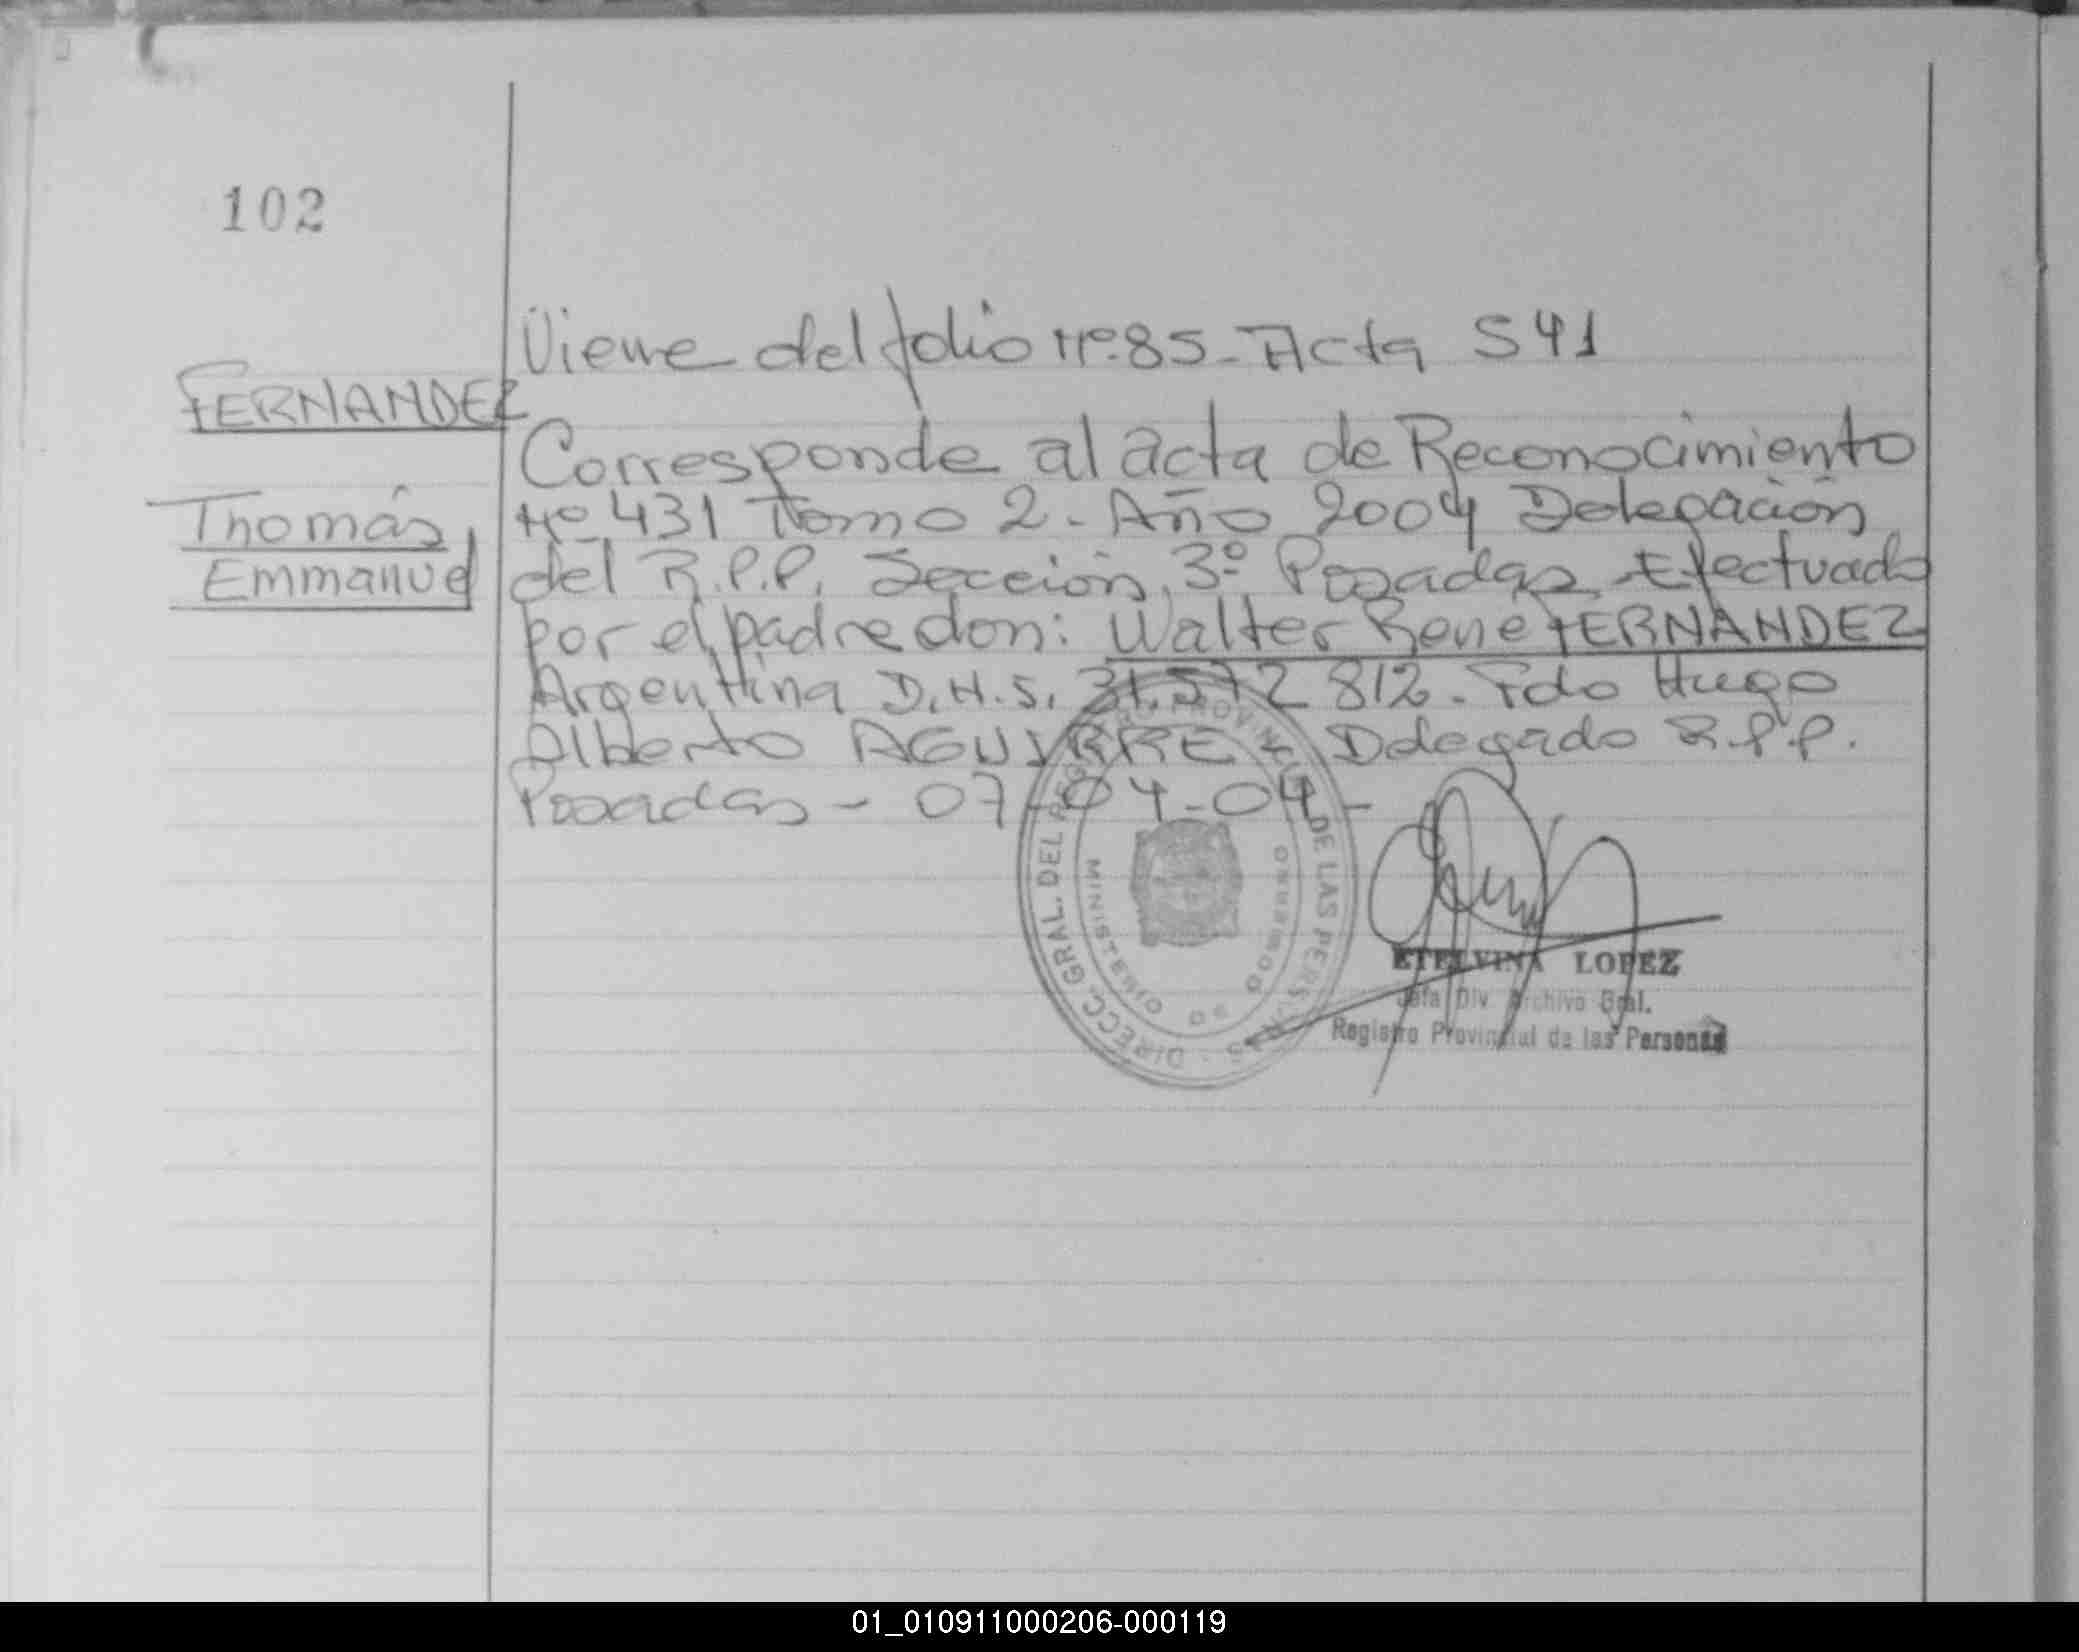 102
Viene del folio Nº 85 - Acta 541
FERNANDEZ
Thomás
Emmanuel
Corresponde al acta de Reconocimiento
Nº 431 Tomo 2 - Año 2004 Delegación
del R.P.P. Sección 3º Posadas Efectuado
por el padre don: Walter Rene FERNANDEZ
Argentina D.N.I. 31.572 812 - Fdo Hugo
Alberto AGUIRRE - Delegado R.P.P.
Posadas - 07-04-04 -
DIRECC. GRAL. DEL REGISTRO PROVINCIAL DE LAS PERSONAS
MINISTERIO DE GOBIERNO
ETELVINA LOPEZ
Jefa Div Archivo Gral.
Registro Provincial de las Personas
01_010911000206-000119